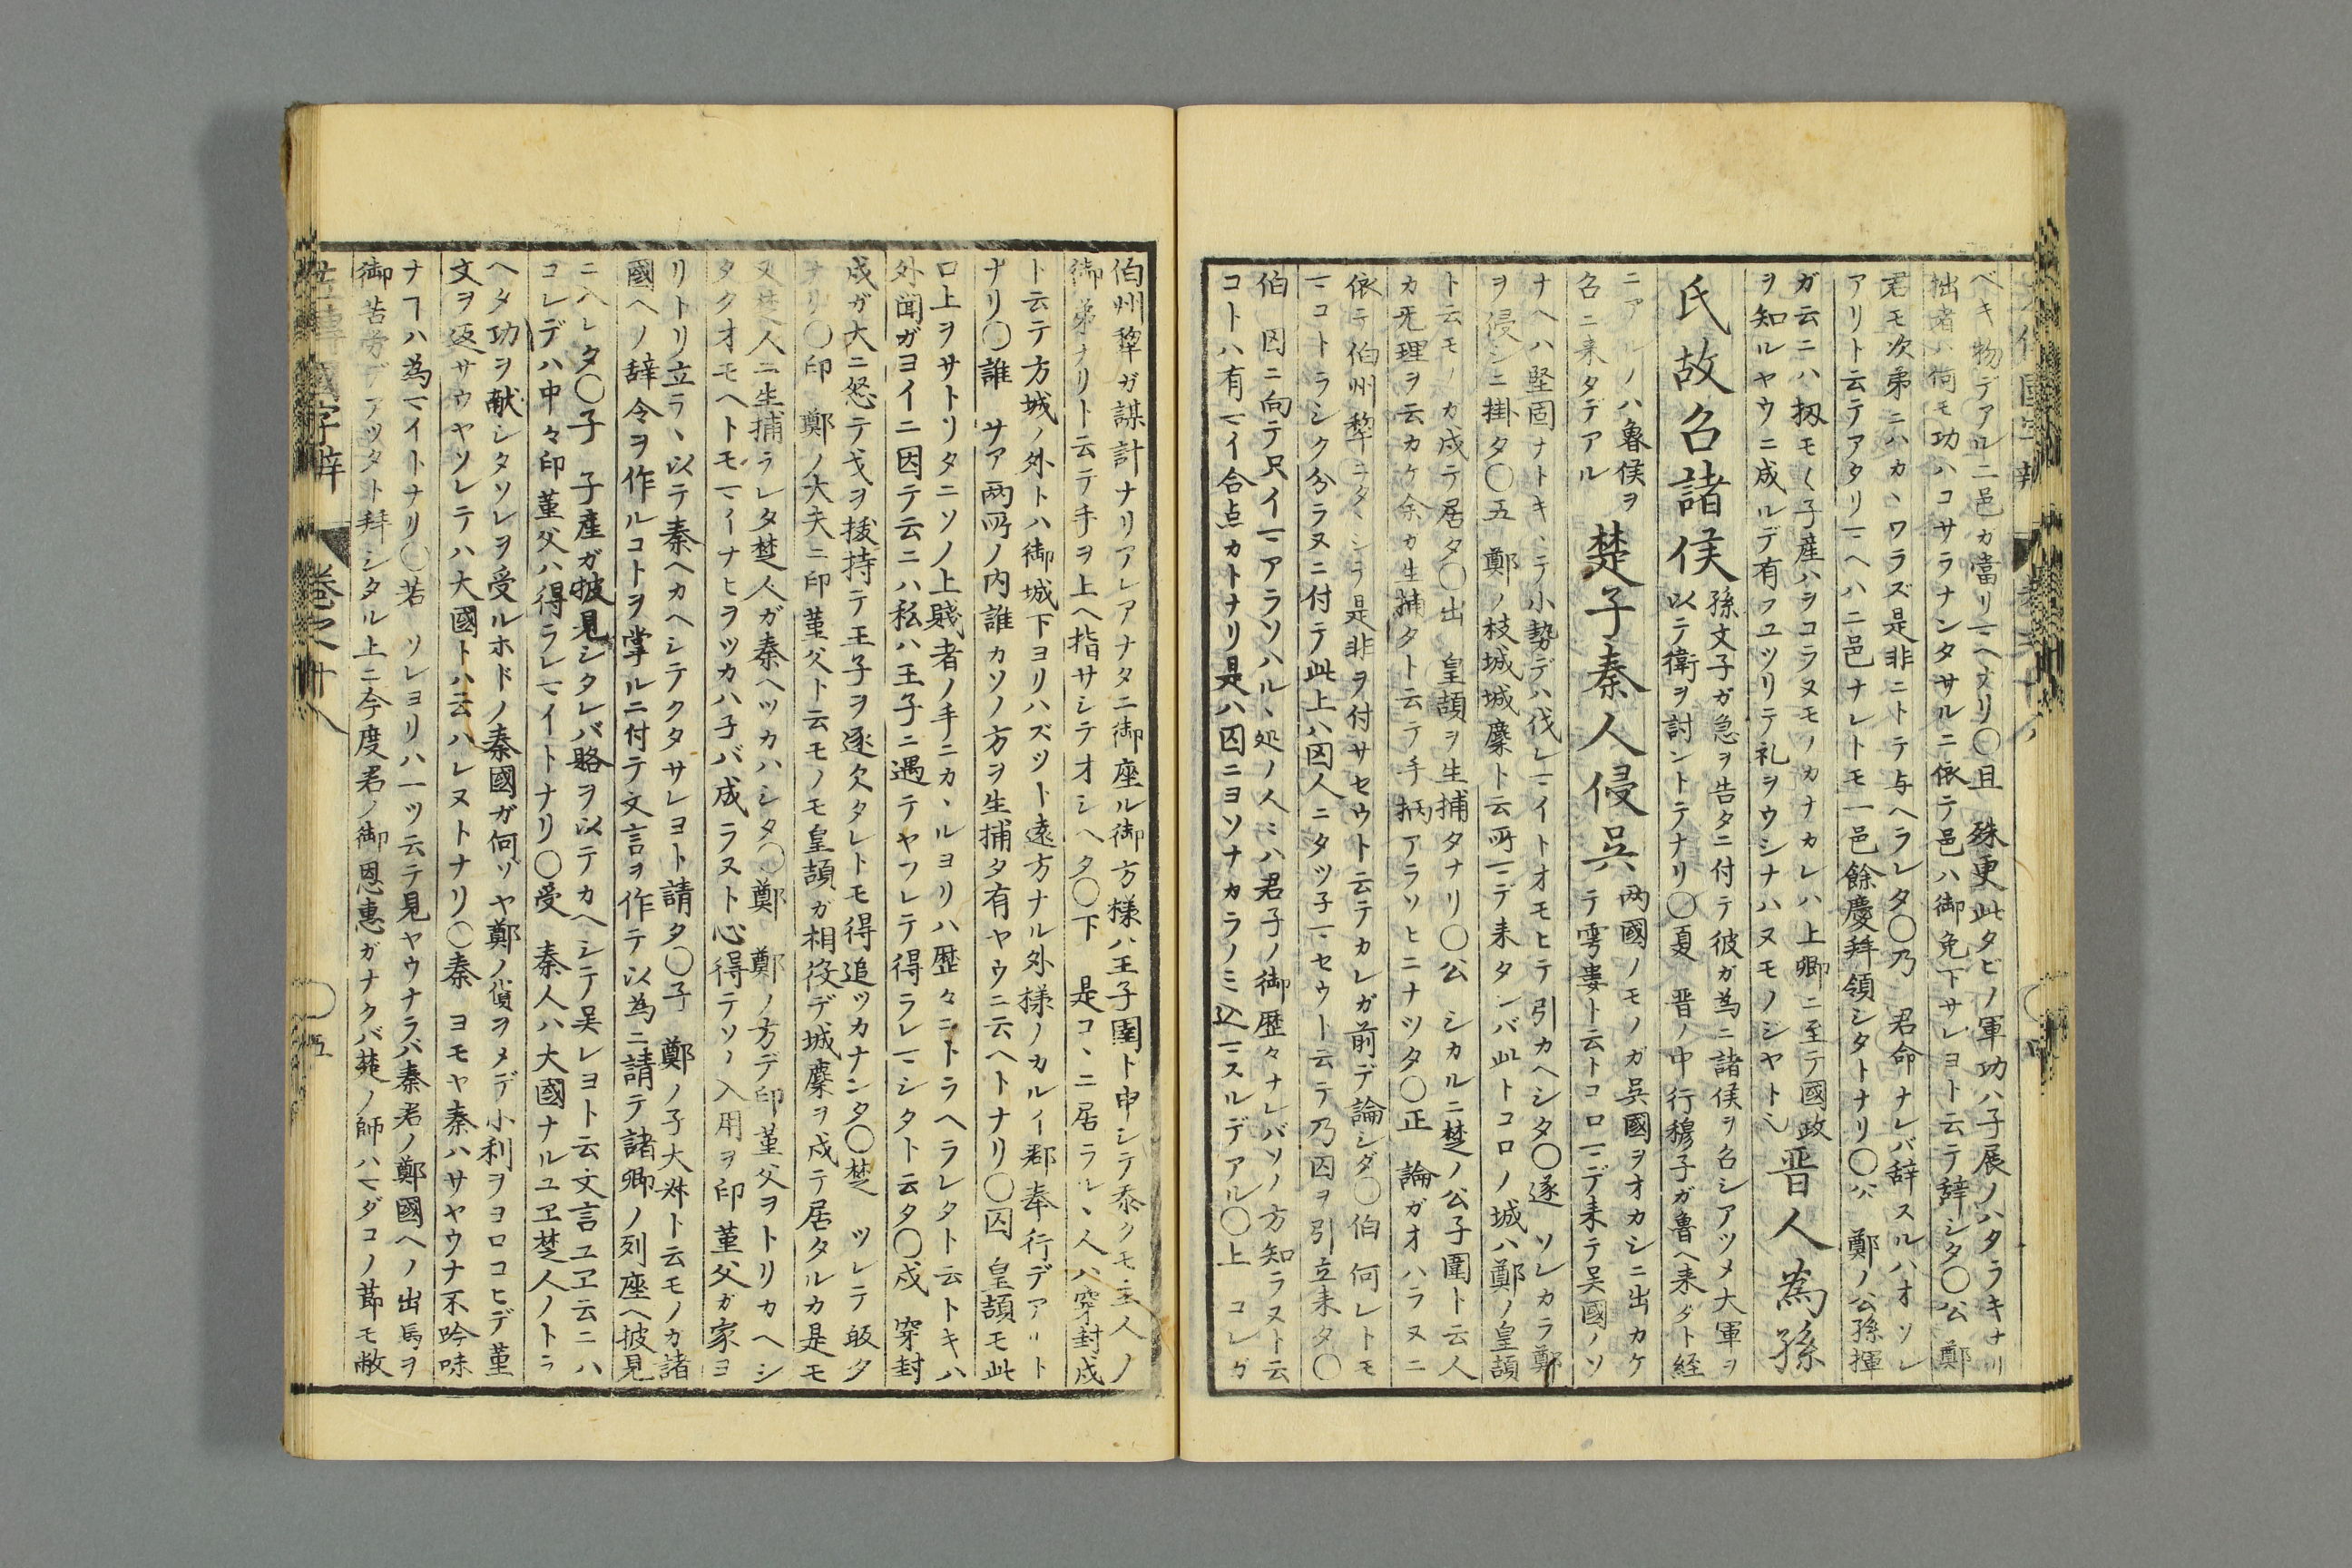 ベキ物デアル二邑カ當リマヘナリ〇且　殊更此タビノ軍功ハ子展ノハタラキナリ
拙者ハ何モ功ハコサラナンタサルニ依テ邑ハ御免下サレヨト云テ辞シタ〇公　鄭
君モ次第ニハカヽワラズ是非ニトテ与ヘラレタ〇乃　君命ナレバ辞スルハオソレ
アリト云テアタリマヘハ二邑ナレトモ一邑餘慶拜領シタトナリ〇公　鄭ノ公孫揮
ガ云ニハ扨モ〱子産ハヲコラヌモノカナカレハ上卿ニ至テ國政
ヲ知ルヤウニ成ルデ有フユツリテ礼ヲウシナハヌモノジヤト
晋人為孫
氏故召諸侯
孫文子ガ急ヲ告タニ付テ彼ガ為ニ諸侯ヲ召シアツメ大軍ヲ
以テ衛ヲ討ントテナリ〇夏　晋ノ中行穆子ガ魯ヘ来タト経
ニアルノハ魯侯ヲ
召ニ来タデアル
楚子秦人侵呉
両國ノモノガ呉國ヲオカシニ出カケ
テ雩婁ト云トコロマデ来テ呉國ノソ
ナヘハ堅固ナトキヽテ小勢デハ伐レマイトオモヒテ引カヘシタ〇遂　ソレカラ鄭
ヲ侵シニ掛タ〇五　鄭ノ枝城城麇ト云所マデ来タンバ此トコロノ城ハ鄭ノ皇頡
ト云モノカ戍テ居タ〇出　皇頡ヲ生捕タナリ〇公　シカルニ楚ノ公子圍ト云人
カ无理ヲ云カケ余カ生捕タト云テ手柄アラソヒニナツタ〇正　論ガオハラヌニ
依テ伯州犂ニタヽシテ是非ヲ付サセウト云テカレガ前デ論シタ〇伯　何レトモ
マコトラシク分ラヌニ付テ此上ハ囚人ニタツ子マセウト云テ乃囚ヲ引立来タ〇
伯　囚ニ向テ只イマアラソハルヽ処ノ人ミハ君子ノ御歴々ナレバソノ方知ラヌト云
コトハ有マイ合点カトナリ是ハ囚ニヨソナカラノミ込マスルデアル〇上　コレガ
伯州犂ガ謀計ナリアレアナタニ御座ル御方様ハ王子圍ト申シテ忝クモ主人ノ
御弟ナリト云テ手ヲ上ヘ指サシテオシヘタ〇下　是コヽニ居ラルヽ人ハ穿封戍
ト云テ方城ノ外トハ御城下ヨリハズツト遠方ナル外様ノカルイ郡奉行デアリト
ナリ〇誰　サア両所ノ内誰カソノ方ヲ生捕タ有ヤウニ云ヘトナリ〇囚　皇頡モ此
口上ヲサトリタニソノ上賎者ノ手ニカヽルヨリハ歴々ニトラヘラレタト云トキハ
外聞ガヨイニ因テ云ニハ私ハ王子ニ遇テヤフレテ得ラレマシタト云タ〇戍　穿封
戍ガ大ニ怒テ戈ヲ抜持テ王子ヲ逐欠タレトモ得追ツカナンタ〇楚　ツレテ皈タ
ナリ〇印　鄭ノ大夫ニ印菫父ト云モノモ皇頡ガ相役デ城麇ヲ戍テ居タルカ是モ
又楚人ニ生捕ラレタ楚人ガ秦ヘツカハシタ〇鄭　鄭ノ方デ印菫父ヲトリカヘシ
タクオモヘトモマイナヒヲツカハ子バ成ラヌト心得テソノ入用ヲ印菫父ガ家ヨ
リトリ立ラヽ以テ秦ヘカヘシテクタサレヨト請タ〇子　鄭ノ子大叔ト云モノカ諸
國ヘノ辞令ヲ作ルコトヲ掌ルニ付テ文言ヲ作テ以為ニ請テ諸卿ノ列座ヘ披見
ニ入レタ〇子　子産ガ披見シタレバ賂ヲ以テカヘシテ呉レヨト云文言ユヱ云ニハ
コレデハ中々印菫父ハ得ラレマイトナリ〇受　秦人ハ大國ナルユヱ楚人ノトラ
ヘタ功ヲ献シタソレヲ受ルホドノ秦國ガ何ゾヤ鄭ノ貨ヲメデ小利ヲヨロコヒデ菫
文ヲ返サウヤソレテハ大國トハ云ハレヌトナリ〇秦　ヨモヤ秦ハサヤウナ不吟味
ナヿハ為マイトナリ〇若　ソレヨリハ一ツ云テ見ヤウナラバ秦君ノ鄭國ヘノ出馬ヲ
御苦労デアツタト拜シタル上ニ今度君ノ御恩惠ガナクバ楚ノ師ハマダコノ節モ敝
左傳國字辯　巻之十八　〇五